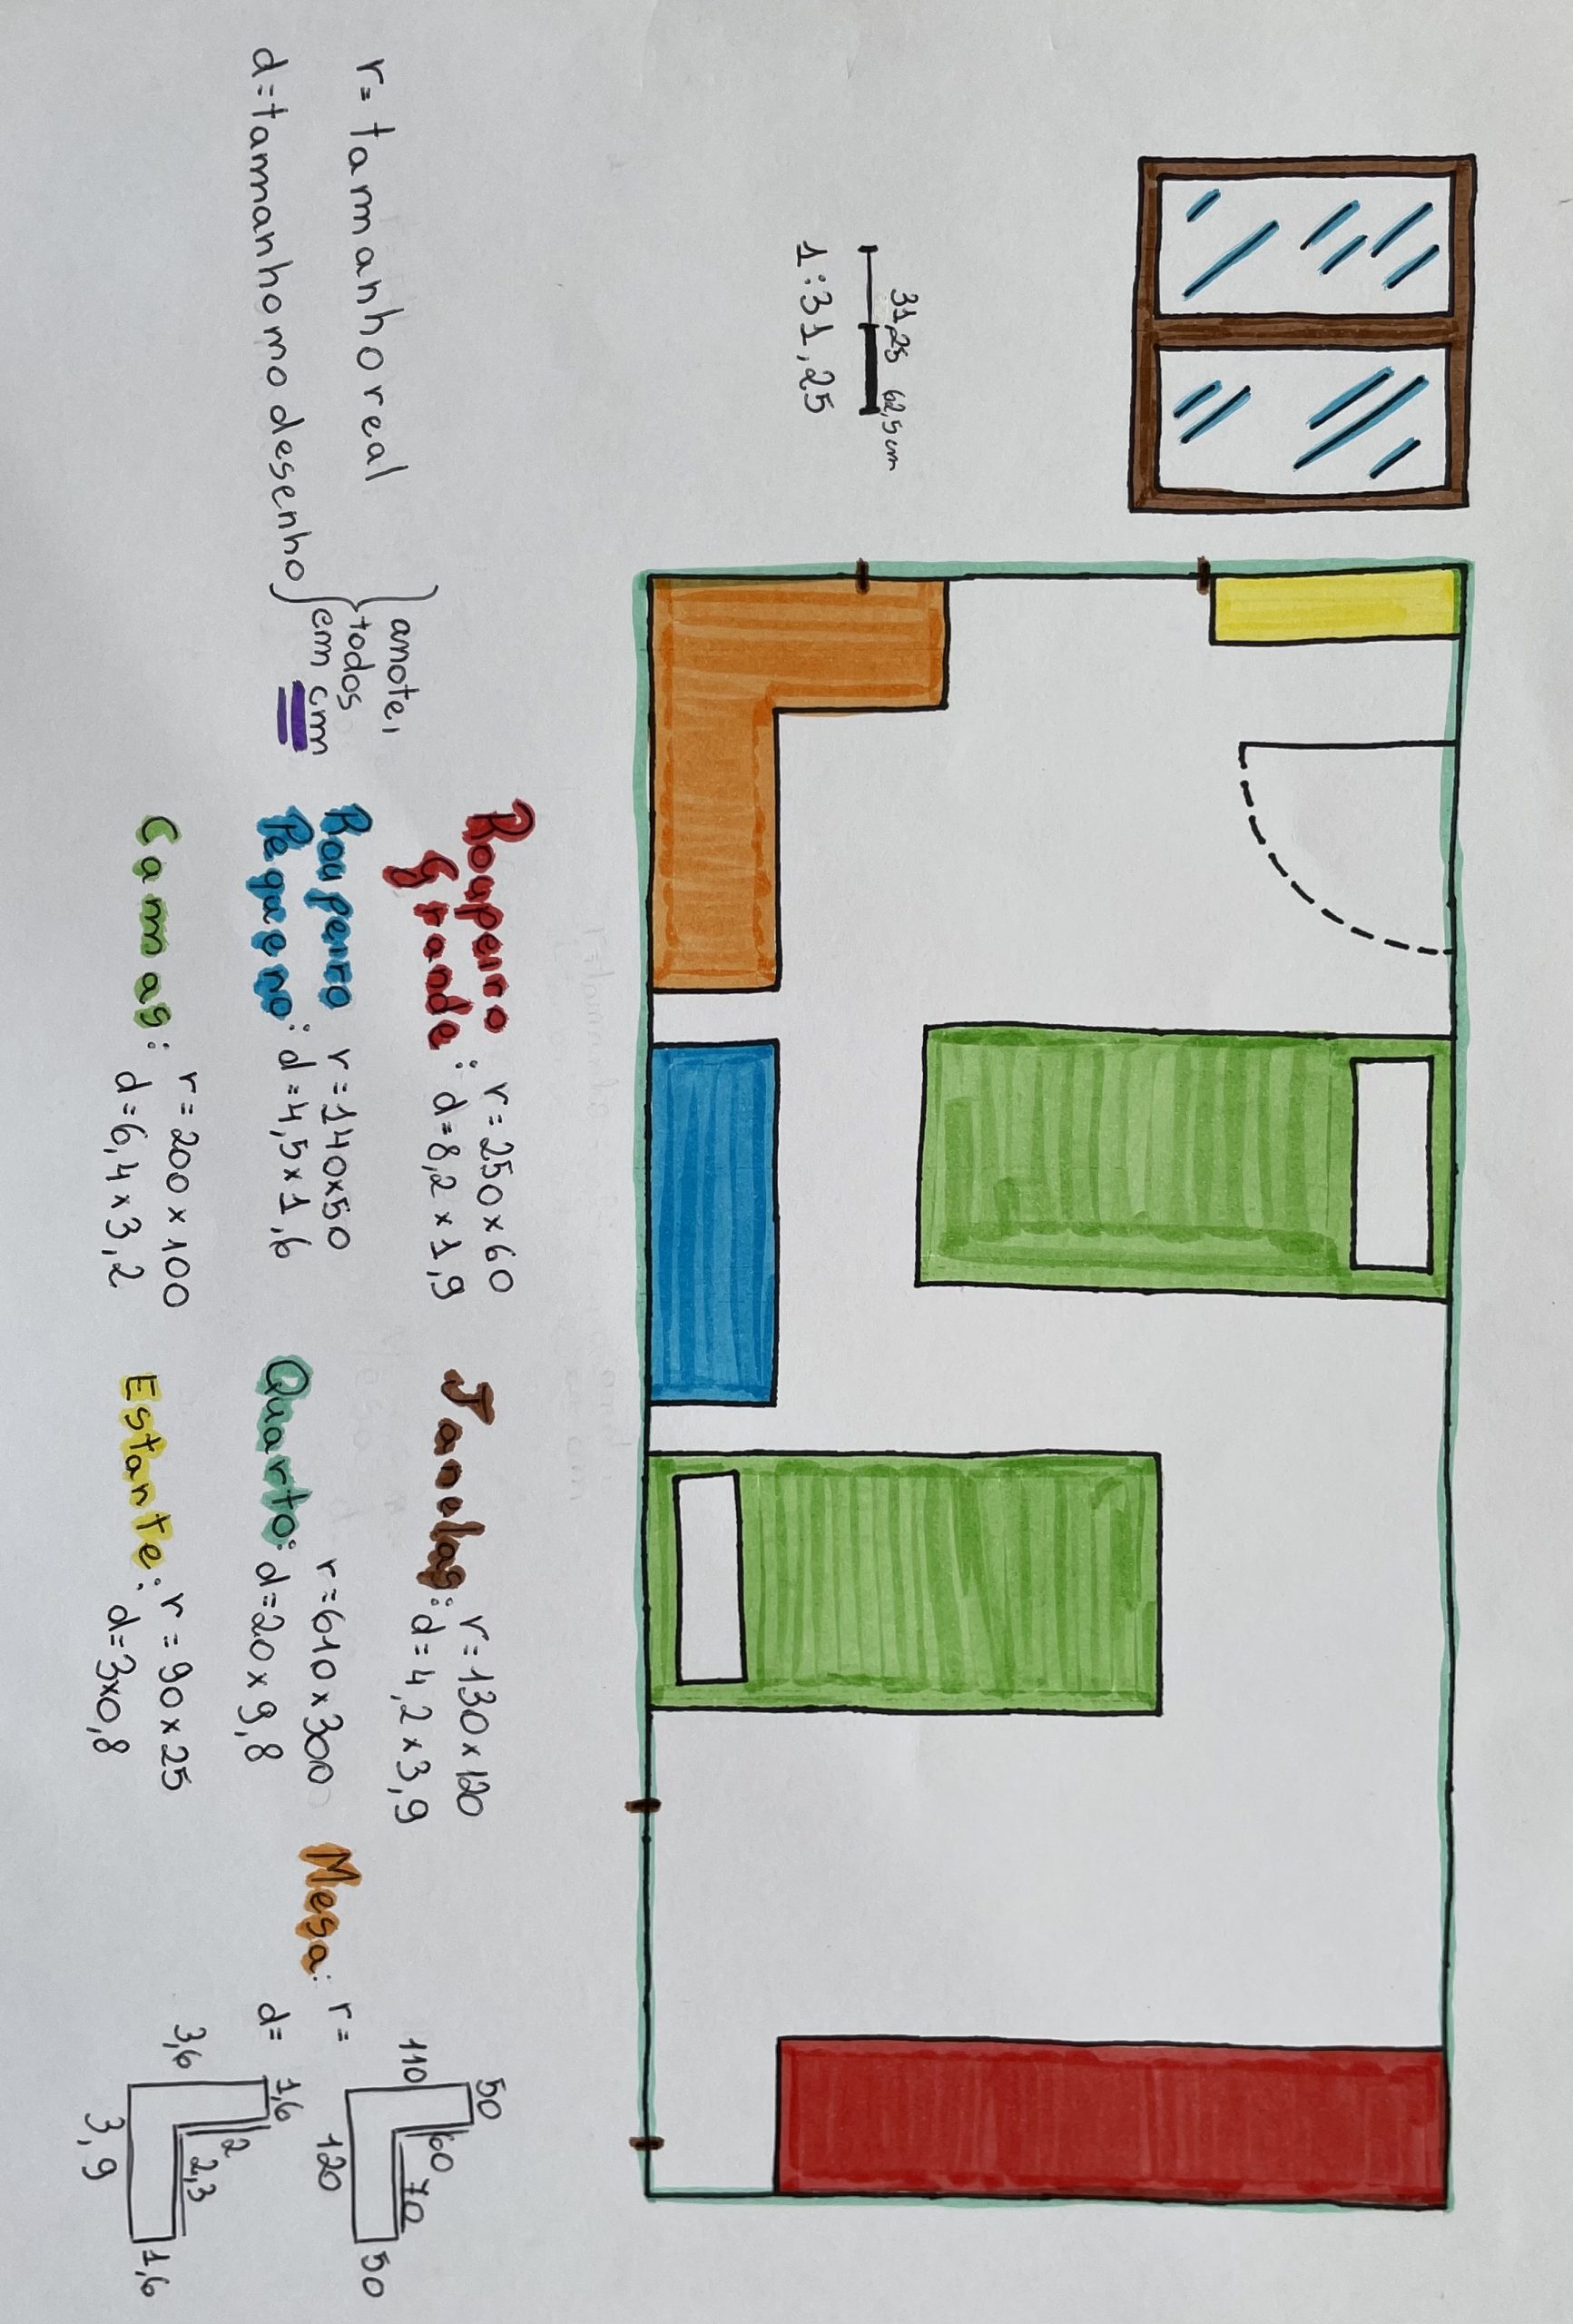 31,25 62,5cm
1:31,25
r= tamanho real
d=tammanho mo desenho
anote,
todos
em cm
Roupeiro
Grande:
r=250×60
d=8,2×1,9
Roupeiro
Pequeno:
r=140×50
d=4,5×1,6
Camas:
r=200×100
d=6,4×3,2
Janelas:
r=130×120
d=4,2×3,9
Quarto:
r=610×300
d=20×9,8
Estante:
r=90×25
d=3×0,8
Mesa:
r=
50
110
60
70
120
50
d=
1,6
3,6
2
2,3
3,9
1,6